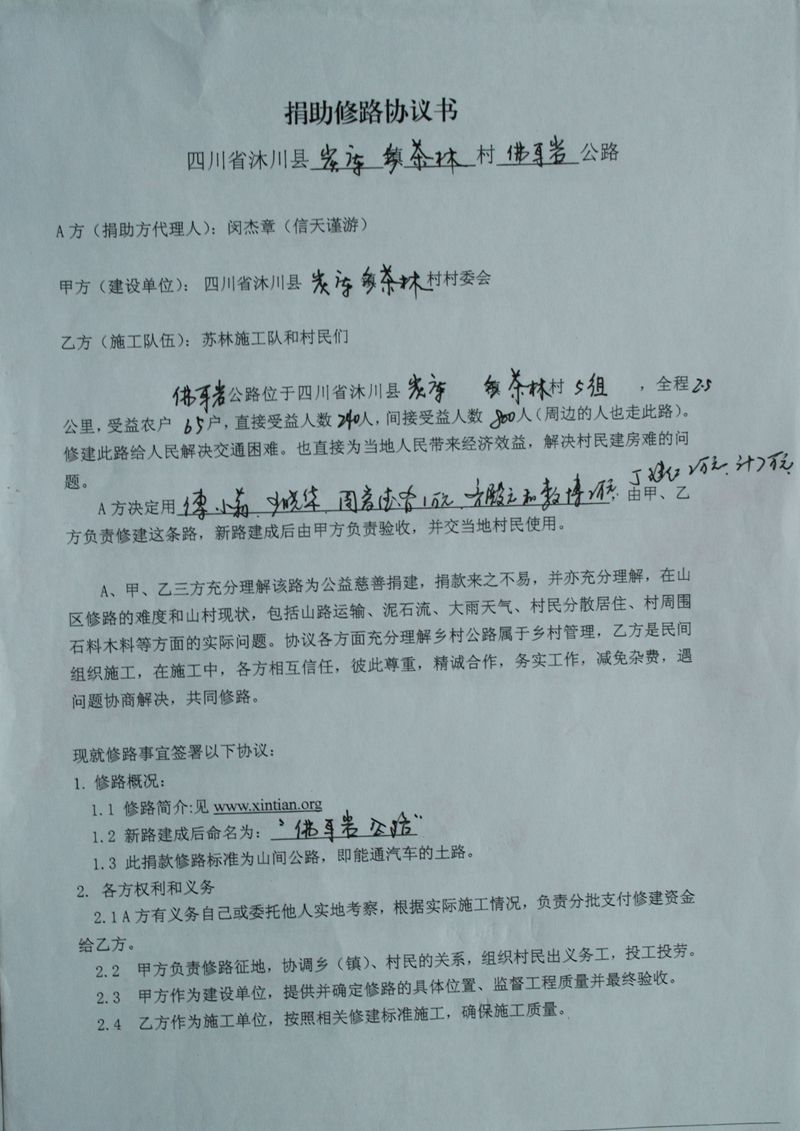 捐助修路协议书
四川省沐川县炭库乡茶林村佛耳岩公路
A方（捐助方代理人）：闵杰章（信天谨游）
甲方（建设单位）： 四川省沐川县炭库乡茶林村村委会
乙方（施工队伍）：苏林施工队和村民们
佛耳岩公路位于四川省沐川县炭库 乡茶林村5组 ，全程2.5
公里，受益农户65户，直接受益人数240人，间接受益人数800人（周边的人也走此路）。
修建此路给人民解决交通困难。也直接为当地人民带来经济效益，解决村民建房难的问
题。
A方决定用 1万元、 2万元、 2万元、计7万元、由甲、乙
方负责修建这条路，新路建成后由甲方负责验收，并交当地村民使用。
A、甲、乙三方充分理解该路为公益慈善捐建，捐款来之不易，并亦充分理解，在山
区修路的难度和山村现状，包括山路运输、泥石流、大雨天气、村民分散居住、村周围
石料木料等方面的实际问题。协议各方面充分理解乡村公路属于乡村管理，乙方是民间
组织施工，在施工中，各方相互信任，彼此尊重，精诚合作，务实工作，减免杂费，遇
问题协商解决，共同修路。
现就修路事宜签署以下协议：
1. 修路概况：
1.1 修路简介:见 www.xintian.org
1.2 新路建成后命名为：“佛耳岩公路”
1.3 此捐款修路标准为山间公路，即能通汽车的土路。
2. 各方权利和义务
2.1A方有义务自己或委托他人实地考察，根据实际施工情况，负责分批支付修建资金
给乙方。
2.2 甲方负责修路征地，协调乡（镇）、村民的关系，组织村民出义务工，投工投劳。
2.3 甲方作为建设单位，提供并确定修路的具体位置、监督工程质量并最终验收。
2.4 乙方作为施工单位，按照相关修建标准施工，确保施工质量。